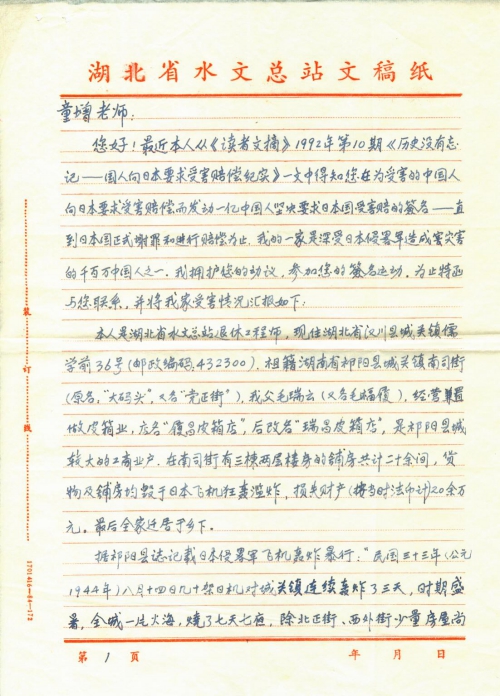 湖北省水文总站文稿纸
童增老师:
您好!最近本人从《读者文摘》1992年第10期《历史没有忘
记——国人向日本要求受害赔偿纪实》一文中得知您在为受害的中国人
向日本要求受害赔偿而发动一亿中国人坚决要求日本国受害赔的签名——直
到日本国正式谢罪和进行赔偿为止.我的一家是深受日本侵略军造成害灾害
的千百万中国人之一.我拥护您的动议,参加您的签名运动.为止特函
与您联系,并将我家受害情况汇报如下:
本人是湖北省水文总站退休工程师,现住湖北省汉川县城关镇儒
学前36号(邮政编码.432300).祖籍湖南省祁阳县城关镇南司街
(原名,"大码头",又名"竞正街"),我父毛瑞云(又名毛福履),经营
做皮箱业,店名"履昌皮箱店",后改名"瑞昌皮箱店",是祁阳县城
较大的工商业户.在南司街有三栋两层楼房的铺面共计二十余间,货
物及铺房均毁于日本飞机狂轰滥炸,损失财产(按当时法币计)20余万
元。最后全家迁居于乡下。
据祁阳县志记载日本侵略军飞机轰炸暴行:"民国三十三年(公元
1944年)八月十四日九十架日机对城关镇连续轰炸了三天,时期盛
暑,全城一片火海,烧了七天七夜,除北正街、西外街少量房屋尚
第 1 页 年 月 日
装 订 线